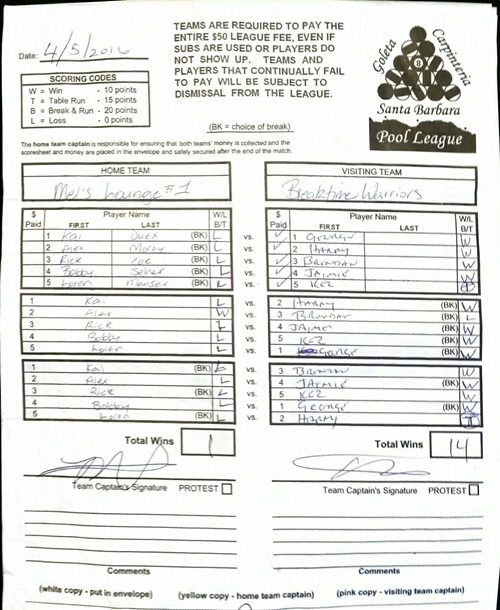 Date: 4/5/2016
TEAMS ARE REQUIRED TO PAY THE
ENTIRE $50 LEAGUE FEE, EVEN IF
SUBS ARE USED OR PLAYERS DO
NOT SHOW UP. TEAMS AND
PLAYERS THAT CONTINUALLY FAIL
TO PAY WILL BE SUBJECT TO
DISMISSAL FROM THE LEAGUE.
Goleta
Carpinteria
8
Santa Barbara
Pool League
SCORING CODES
W = Win - 10 points
T = Table Run - 15 points
B = Break & Run - 20 points
L = Loss - 0 points
(BK = choice of break)
The home team captain is responsible for ensuring that both teams' money is collected and the
scoresheet and money are placed in the envelope and safely secured after the end of the match.
HOME TEAM VISITING TEAM
Mel's Lounge #1 Breaktime Warriors
$ Paid Player Name FIRST LAST W/L B/T $ Paid Player Name FIRST LAST W/L B/T
1 Kai Duex (BK) L vs. 1 George W
2 Alex (BK) L vs. 2 Harry W
3 Rick (BK) L vs. 3 Brendan W
4 Bobby (BK) L vs. 4 Jaimie W
5 Loren (BK) L vs. 5 Kez
1 Kai L vs. 2 Harry (BK) W
2 Alex W vs. 3 Brendan (BK) L
3 Rick L vs. 4 Jaimie (BK) W
4 Bobby L vs. 5 Kez (BK) W
5 L vs. 1 George (BK) W
1 Kai (BK) L vs. 3 Brendan W
2 Alex L vs. 4 Jaimie (BK) W
3 Rick (BK) L vs. 5 Kez W
4 Bobby L vs. 1 George (BK) W
5 Loren (BK) L vs. 2 Harry T
Total Wins 1 Total Wins 14
Team Captain's Signature PROTEST Team Captain's Signature PROTEST
Comments Comments
(white copy - put in envelope) (yellow copy - home team captain) (pink copy - visiting team captain)